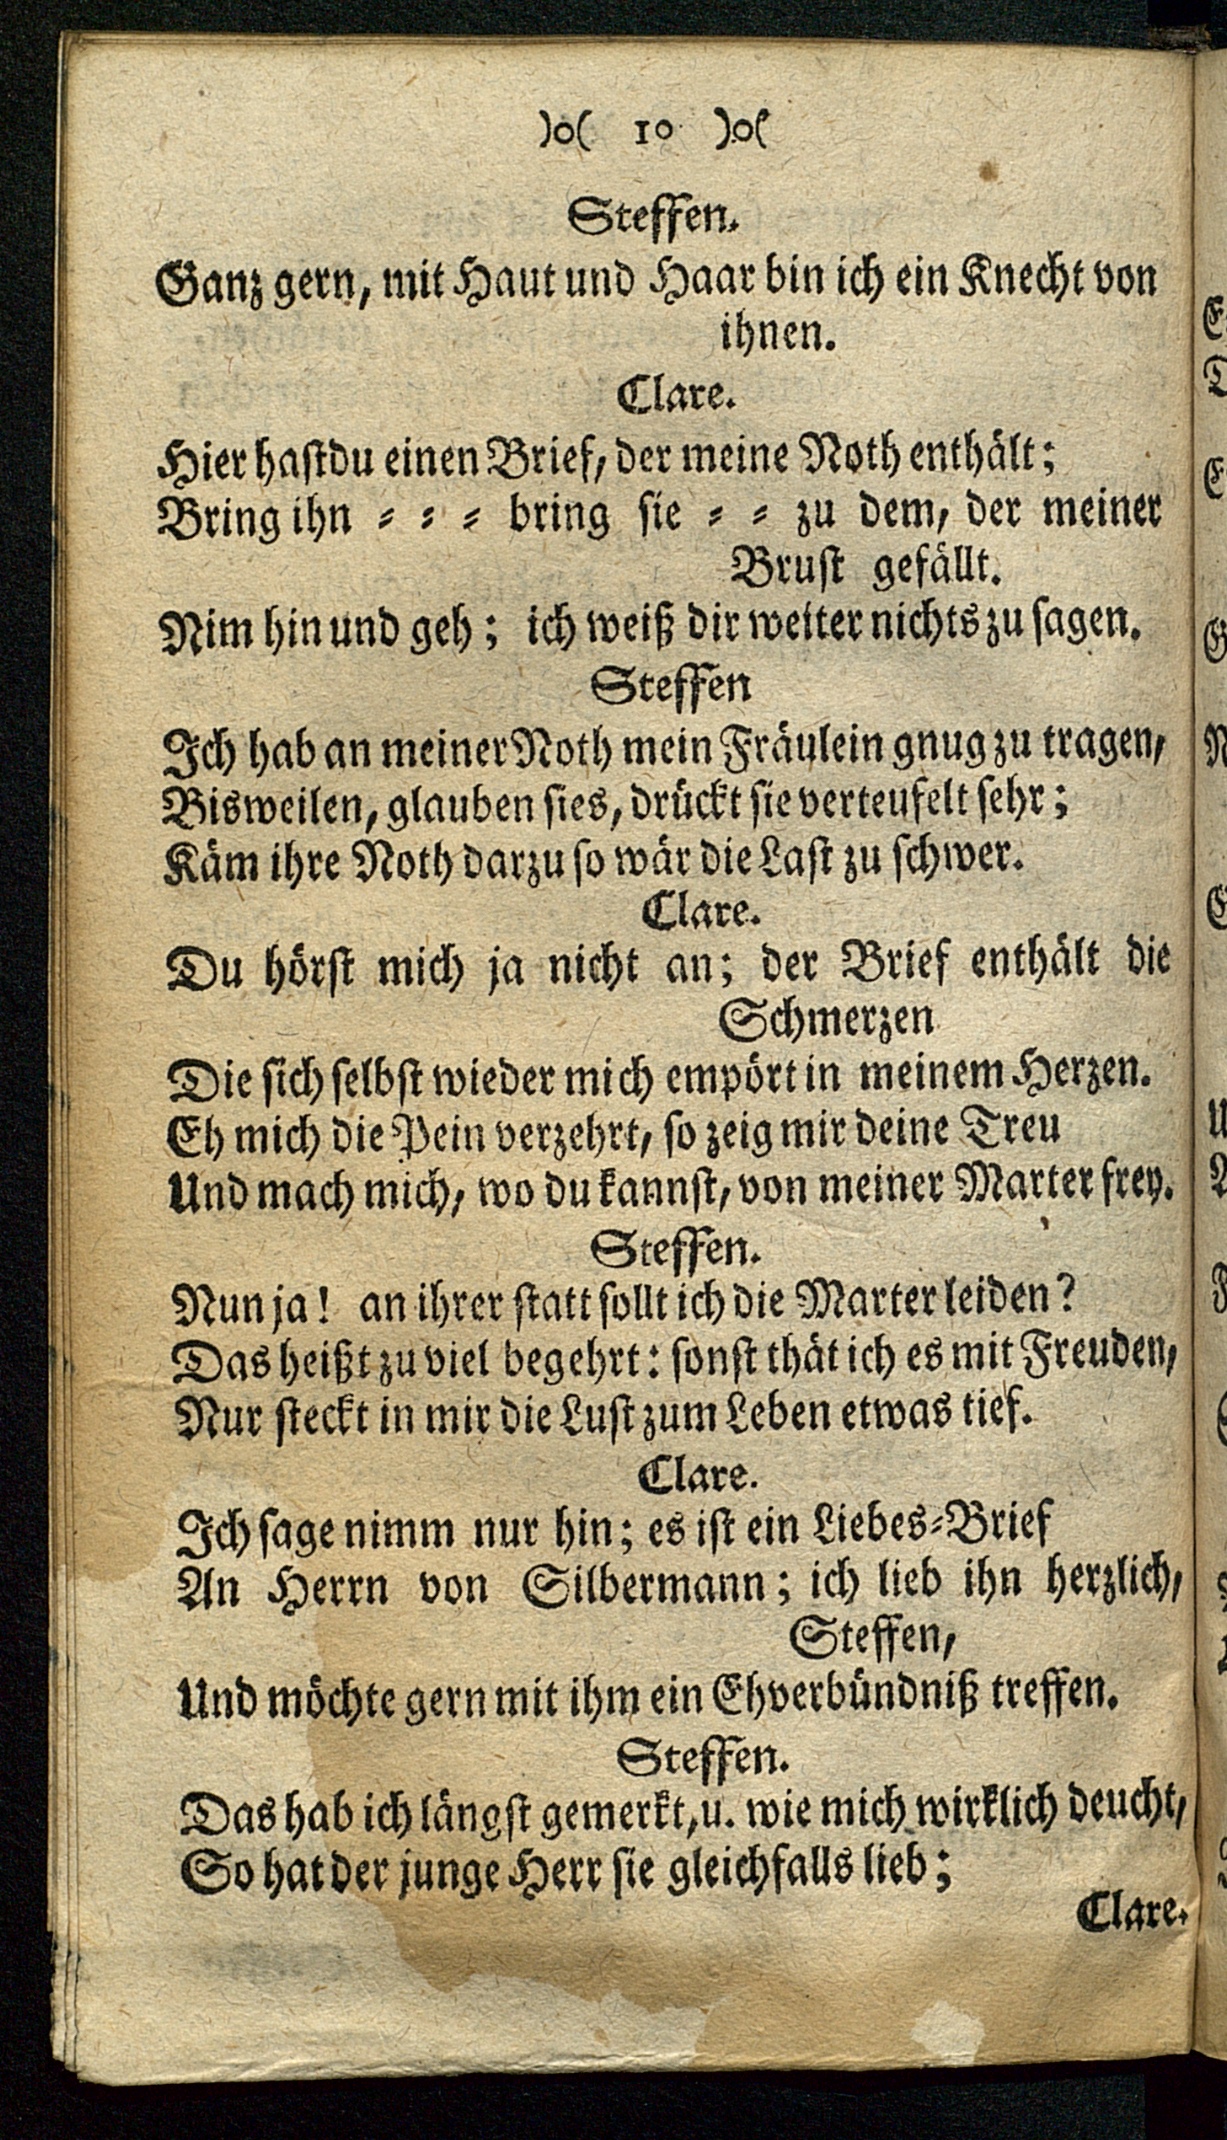 )o( 10 )o(
Steffen.
Ganz gern, mit Haut und Haar bin ich ein Knecht von
ihnen.
Clare.
Hier hast du einen Brief, der meine Noth enthält;
Bring ihn = = = bring sie = = zu dem, der meiner
Brust gefällt.
Nim hin und geh; ich weiß dir weiter nichts zu sagen.
Steffen
Ich hab an meiner Noth mein Fräulein gnug zu tragen,
Bisweilen, glauben sies, drückt sie verteufelt sehr;
Käm ihre Noth darzu so wär die Last zu schwer.
Clare.
Du hörst mich ja nicht an; der Brief enthält die
Schmerzen
Die sich selbst wieder mich empört in meinem Herzen.
Eh mich die Pein verzehrt, so zeig mir deine Treu
Und mach mich, wo du kannst, von meiner Marter frey.
Steffen.
Nun ja! an ihrer statt sollt ich die Marter leiden?
Das heißt zu viel begehrt: sonst thät ich es mit Freuden,
Nur steckt in mir die Lust zum Leben etwas tief.
Clare.
Ich sage nimm nur hin; es ist ein Liebes=Brief
An Herrn von Silbermann; ich lieb ihn herzlich,
Steffen,
Und möchte gern mit ihm ein Ehverbündniß treffen.
Steffen.
Das hab ich längst gemerkt, u. wie mich wirklich deucht,
So hat der junge Herr sie gleichfalls lieb;
Clare.